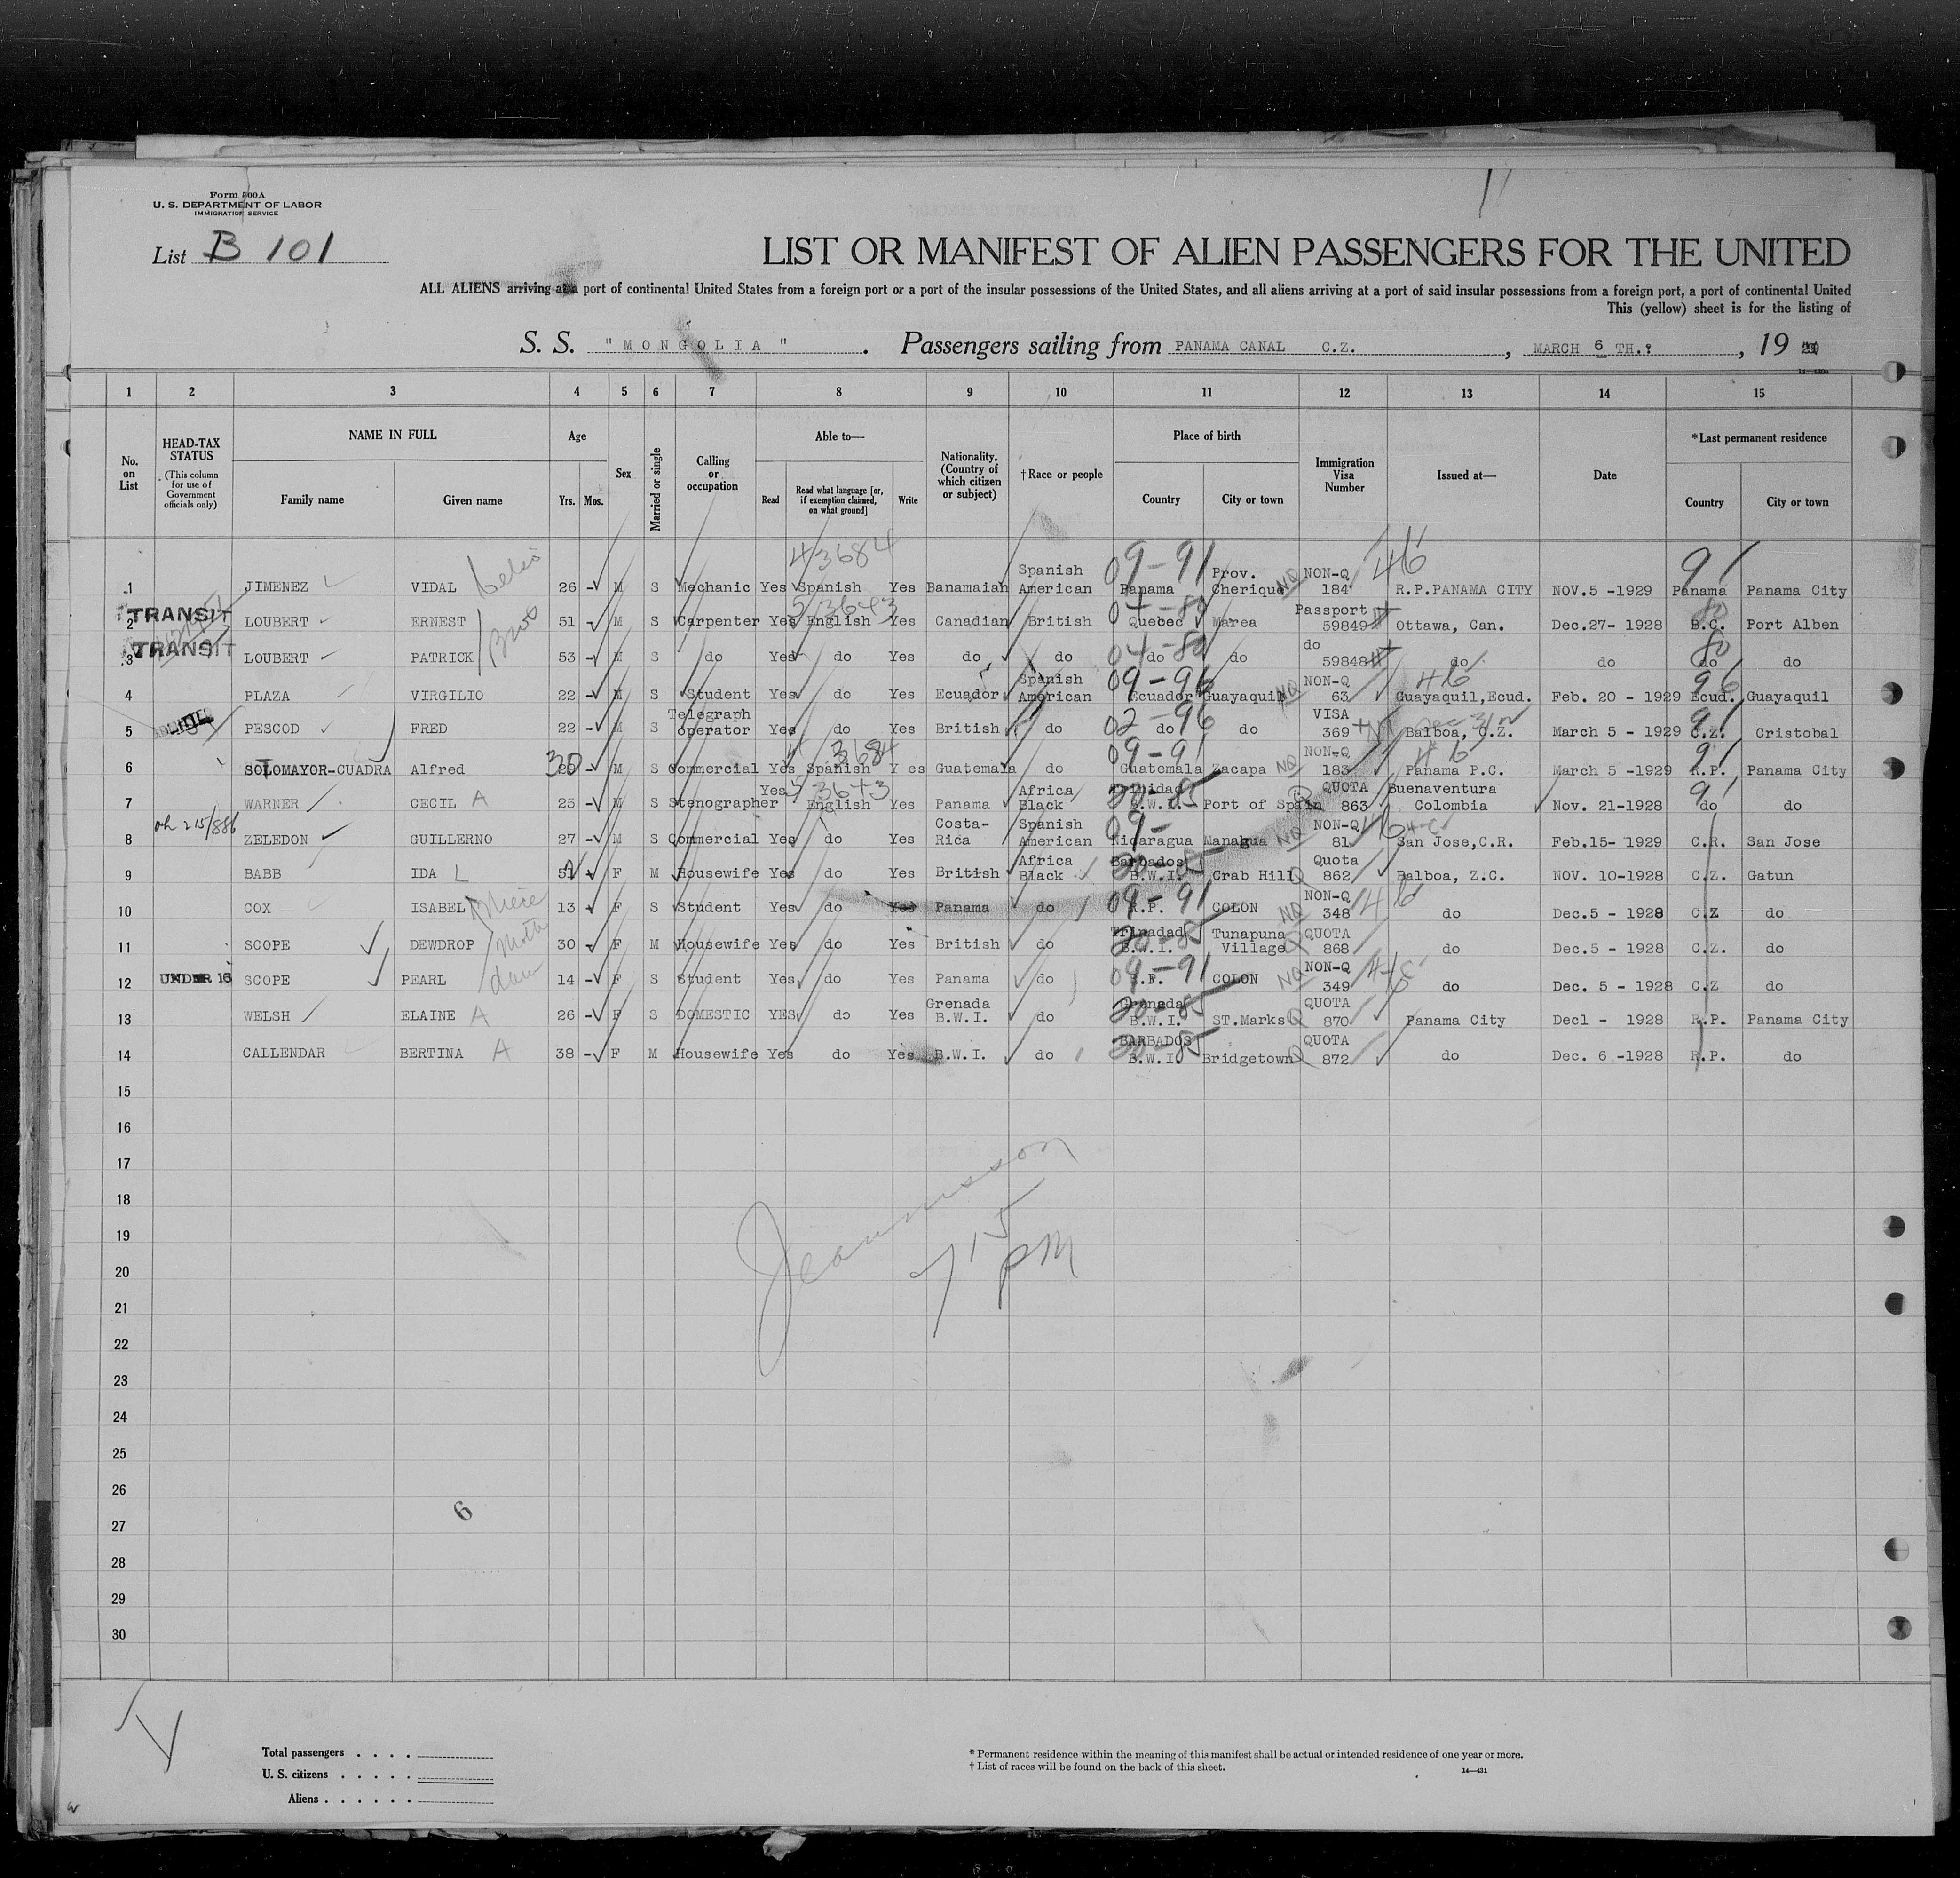 Form 500A
U. S. DEPARTMENT OF LABOR
IMMIGRATION SERVICE
List B 101
LIST OR MANIFEST OF ALIEN PASSENGERS FOR THE UNITED
ALL ALIENS arriving at a port of continental United States from a foreign port or a port of the insular possessions of the United States, and all aliens arriving at a port of said insular possessions from a foreign port, a port of continental United
This (yellow) sheet is for the listing of
S. S. "MONGOLIA". Passengers sailing from PANAMA CANAL C.Z., MARCH 6 TH., 19 29
1 2 3 4 5 6 7 8 9 10 11 12 13 14 15
No. on List
HEAD-TAX STATUS (This column for use of Government officials only)
NAME IN FULL Family name Given name
Age Yrs. Mos.
Sex
Married or single
Calling or occupation
Able to— Read Read what language [or, if exemption claimed, on what ground] Write
Nationality. (Country of which citizen or subject)
†Race or people
Place of birth Country City or town
Immigration Visa Number
Issued at—
Date
*Last permanent residence Country City or town
43684 09-91 46 91
1 JIMENEZ VIDAL 26 - M S Mechanic Yes Spanish Yes Banamaian Spanish American Panama Prov. Cherique NQ NON-Q 184 R.P.PANAMA CITY NOV.5 -1929 Panama Panama City
53643 04-80 80
2 TRANSIT LOUBERT ERNEST Bros 51 - M S Carpenter Yes English Yes Canadian British Quebec Marea Passport 59849 Ottawa, Can. Dec.27- 1928 B.C. Port Alben
04-80 80
3 TRANSIT LOUBERT PATRICK 53 - M S do Yes do Yes do do do do do 59848 do do do do
09-96 46 96
4 PLAZA VIRGILIO 22 - M S Student Yes do Yes Ecuador Spanish American Ecuador Guayaquil NQ NON-Q 63 Guayaquil,Ecud. Feb. 20 - 1929 Ecud. Guayaquil
02-96 91
5 PESCOD FRED 22 - M S Telegraph operator Yes do Yes British do do do VISA 369 Balboa, C.Z. March 5 - 1929 C.Z. Cristobal
30 43684 09-91 46 91
6 SOTOMAYOR-CUADRA Alfred M S Commercial Yes Spanish Y es Guatemala do Guatemala Zacapa NQ NON-Q 183 Panama P.C. March 5 -1929 R.P. Panama City
53643 20-85 91
7 WARNER CECIL A 25 - M S Stenographer Yes English Yes Panama Africa Black Trinidad B.W.I. Port of Spain Q QUOTA 863 Buenaventura Colombia Nov. 21-1928 do do
09- 46
8 ZELEDON GUILLERNO 27 - M S Commercial Yes do Yes Costa-Rica Spanish American Nicaragua Managua NQ NON-Q 81 San Jose,C.R. Feb.15- 1929 C.R. San Jose
20-85
9 BABB IDA L F M Housewife Yes do Yes British Africa Black Barbados B.W.I. Crab Hill Q Quota 862 Balboa, Z.C. NOV. 10-1928 C.Z. Gatun
09-91 46
10 COX ISABEL Niece 13 F S Student Yes do Yes Panama do R.P. COLON NQ NON-Q 348 do Dec.5 - 1928 C.Z do
20-85
11 SCOPE DEWDROP Moth 30 - F M Housewife Yes do Yes British do Trinadad B.W.I. Tunapuna Village Q QUOTA 868 do Dec.5 - 1928 C.Z. do
09-91 4-C
12 UNDER 16 SCOPE PEARL dau 14 - F S Student Yes do Yes Panama do R.P. COLON NQ NON-Q 349 do Dec. 5 - 1928 C.Z do
20-85
13 WELSH ELAINE A 26 - F S DOMESTIC YES do Yes Grenada B.W.I. do Grenada B.W.I. ST.Marks Q QUOTA 870 Panama City Dec1 - 1928 R.P. Panama City
20-85
14 CALLENDAR BERTINA A 38 - F M Housewife Yes do Yes B.W.I. do BARBADOS B.W.I. Bridgetown Q QUOTA 872 do Dec. 6 -1928 R.P. do
15
16
17
18
19
20
21
22
23
24
25
26
27
28
29
30
7 15 PM
6
Total passengers . . . .
U. S. citizens . . . . .
Aliens . . . . . .
* Permanent residence within the meaning of this manifest shall be actual or intended residence of one year or more.
† List of races will be found on the back of this sheet.
14—431